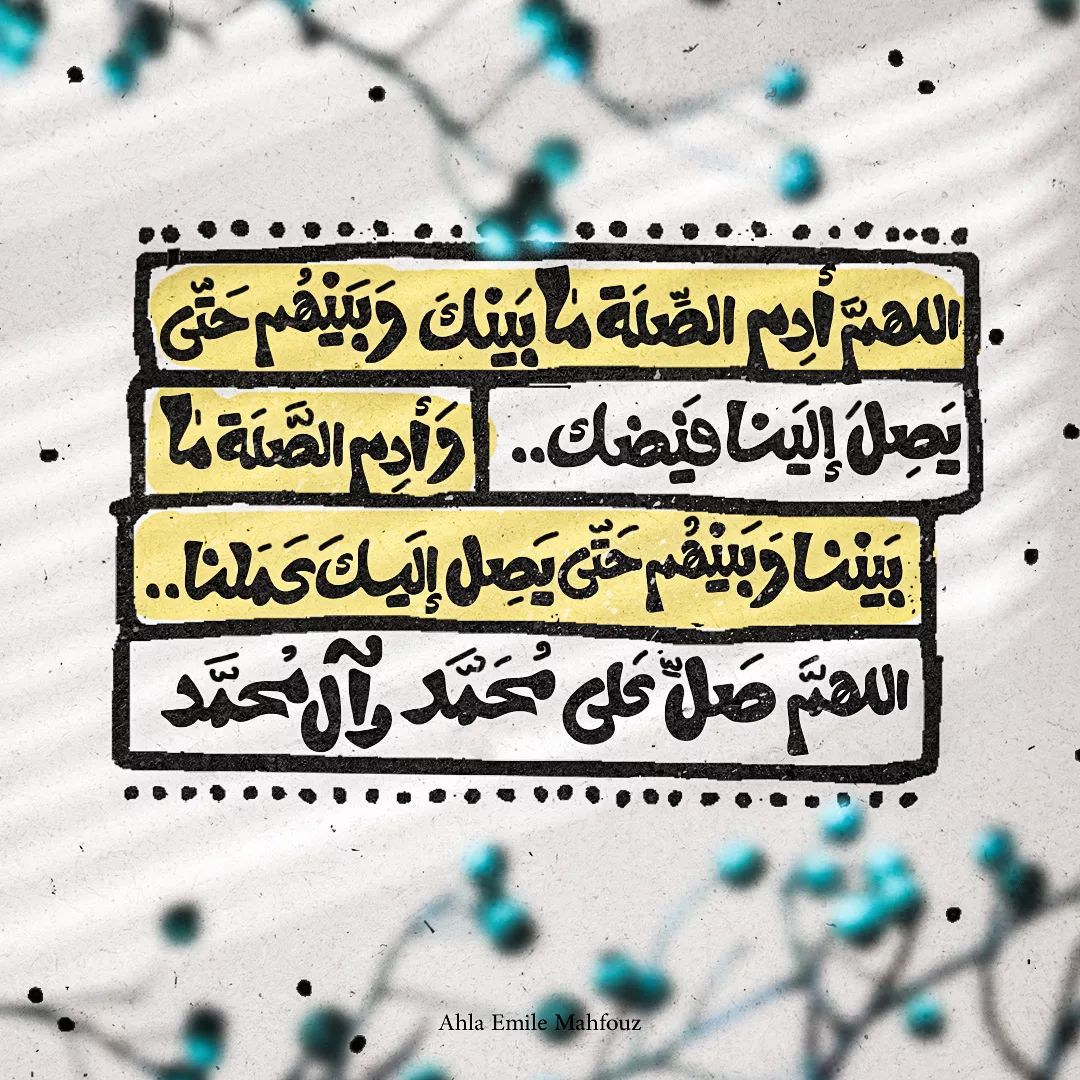 اللهمَّ أَدِم الصِّلَة ما بَينكَ وَبَينَهُم حَتّى
يَصِلَ إلَينا فَيضك..
وَأَدِم الصَّلَة ما
بَيَننا وَبَينَهُم حَتّى يَصِل إلَيكَ عَمَلنا..
اللهمَّ صَلِّ عَلى مُحَمَّد وآل مُحمَّد
Ahla Emile Mahfouz